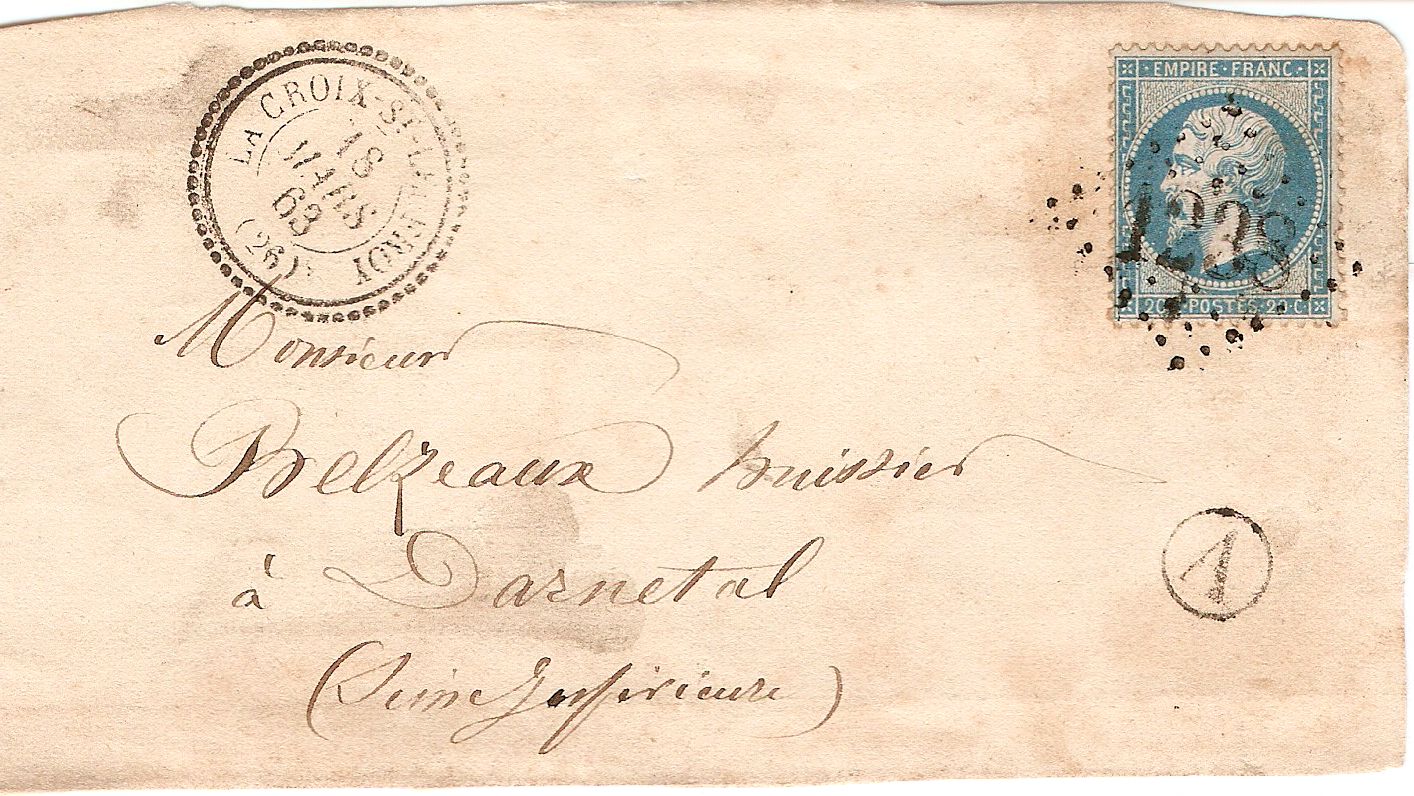 LA CROIX-ST-LEUFROY
18
MARS
63
(26)
EMPIRE·FRANC·
20 C·POSTES·20·C
1238
Monsieur
Belzeaux huissier
à Darnetal
(Seine Inférieure)
1